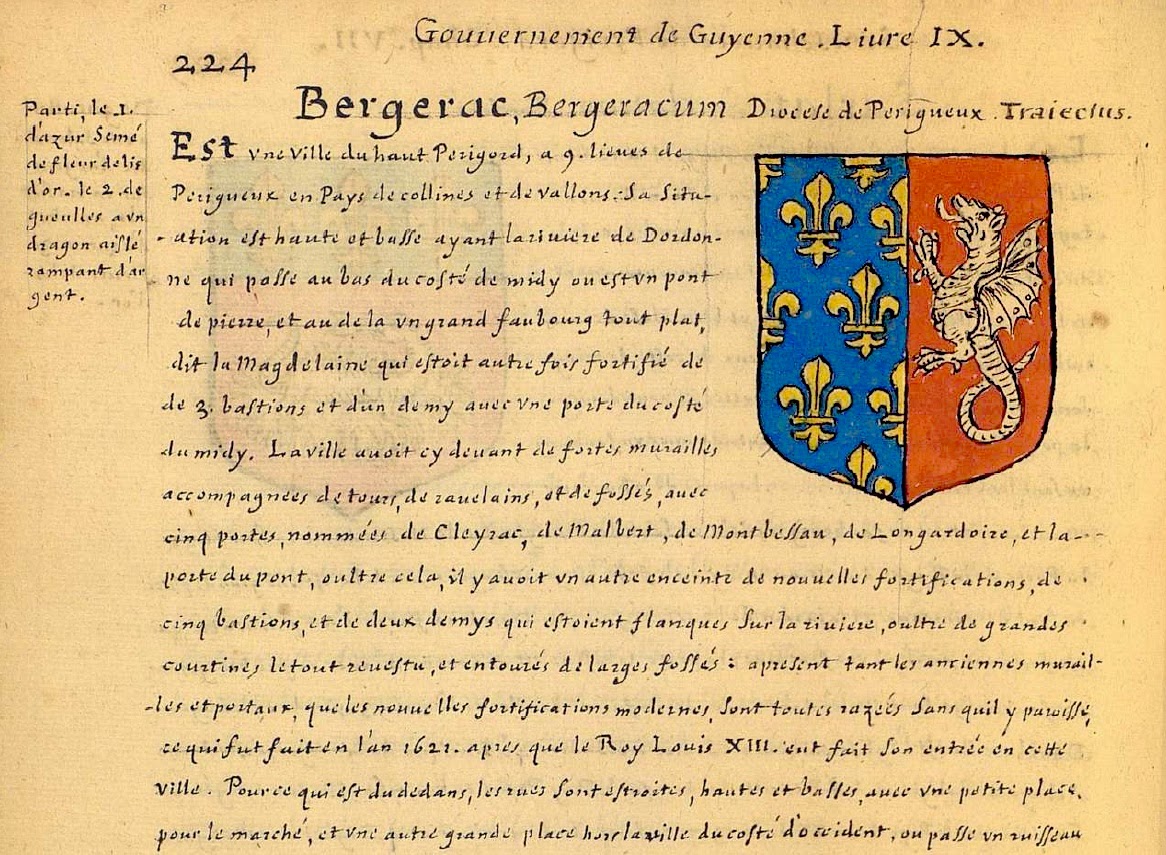 Gouuernement de Guyenne. Liure IX.
224
Bergerac, Bergeracum Diocese de Perigueux. Traiectus.
Parti, le 1.
d'azur Semé
de fleur de lis
d'or. le 2. de
gueulles a vn
dragon aislé
rampant d'ar
gent.
Est vne Ville du haut Perigord, a 9. lieues de
Perigueux en Pays de collines et de vallons. Sa Situ-
-ation est haute et basse ayant la riuiere de Dordon-
ne qui passe au bas du costé de midy ou est vn pont
de pierre, et au de la vn grand faubourg tout plat,
dit la Magdelaine qui estoit autre fois fortifié de
de 3. bastions et d'un demy auec vne porte du costé
du midy. La ville auoit cy deuant de fortes murailles
accompagnées de tours, de rauelains, et de fossés, auec
cinq portes, nommées de Cleyrac, de Malbert, de Montbessau, de Longardoire, et la--
porte du pont, oultre cela, il y auoit vn autre enceinte de nouuelles fortifications, de
cinq bastions, et de deux demys qui estoient flanques Sur la riuiere, oultre de grandes
courtines le tout reuestu, et entourés de larges fossés : apresent tant les anciennes murail-
-les et portaux, que les nouuelles fortifications modernes, Sont toutes razeés Sans quil y paroisse,
ce qui fut fait en l'an 1621. apres que le Roy Louis XIII. eut fait Son entrée en cette
ville. Pour ce qui est du dedans, les rues Sont estroites, hautes et basses, auec vne petite place,
pour le marché, et vne autre grande place hors la ville du costé d'occident, ou passe vn ruisseau